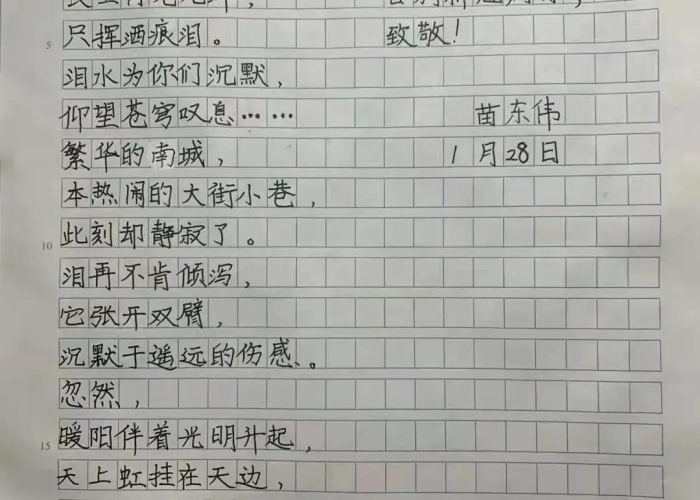 只挥洒痕泪。 致敬!
泪水为你们沉默,
仰望苍穹叹息…… 苗东伟
繁华的南城, 1月28日
本热闹的大街小巷,
10 此刻却静寂了。
泪再不肯倾泻,
它张开双臂,
沉默于遥远的伤感。
忽然,
15 暖阳伴着光明升起,
天上虹挂在天边,